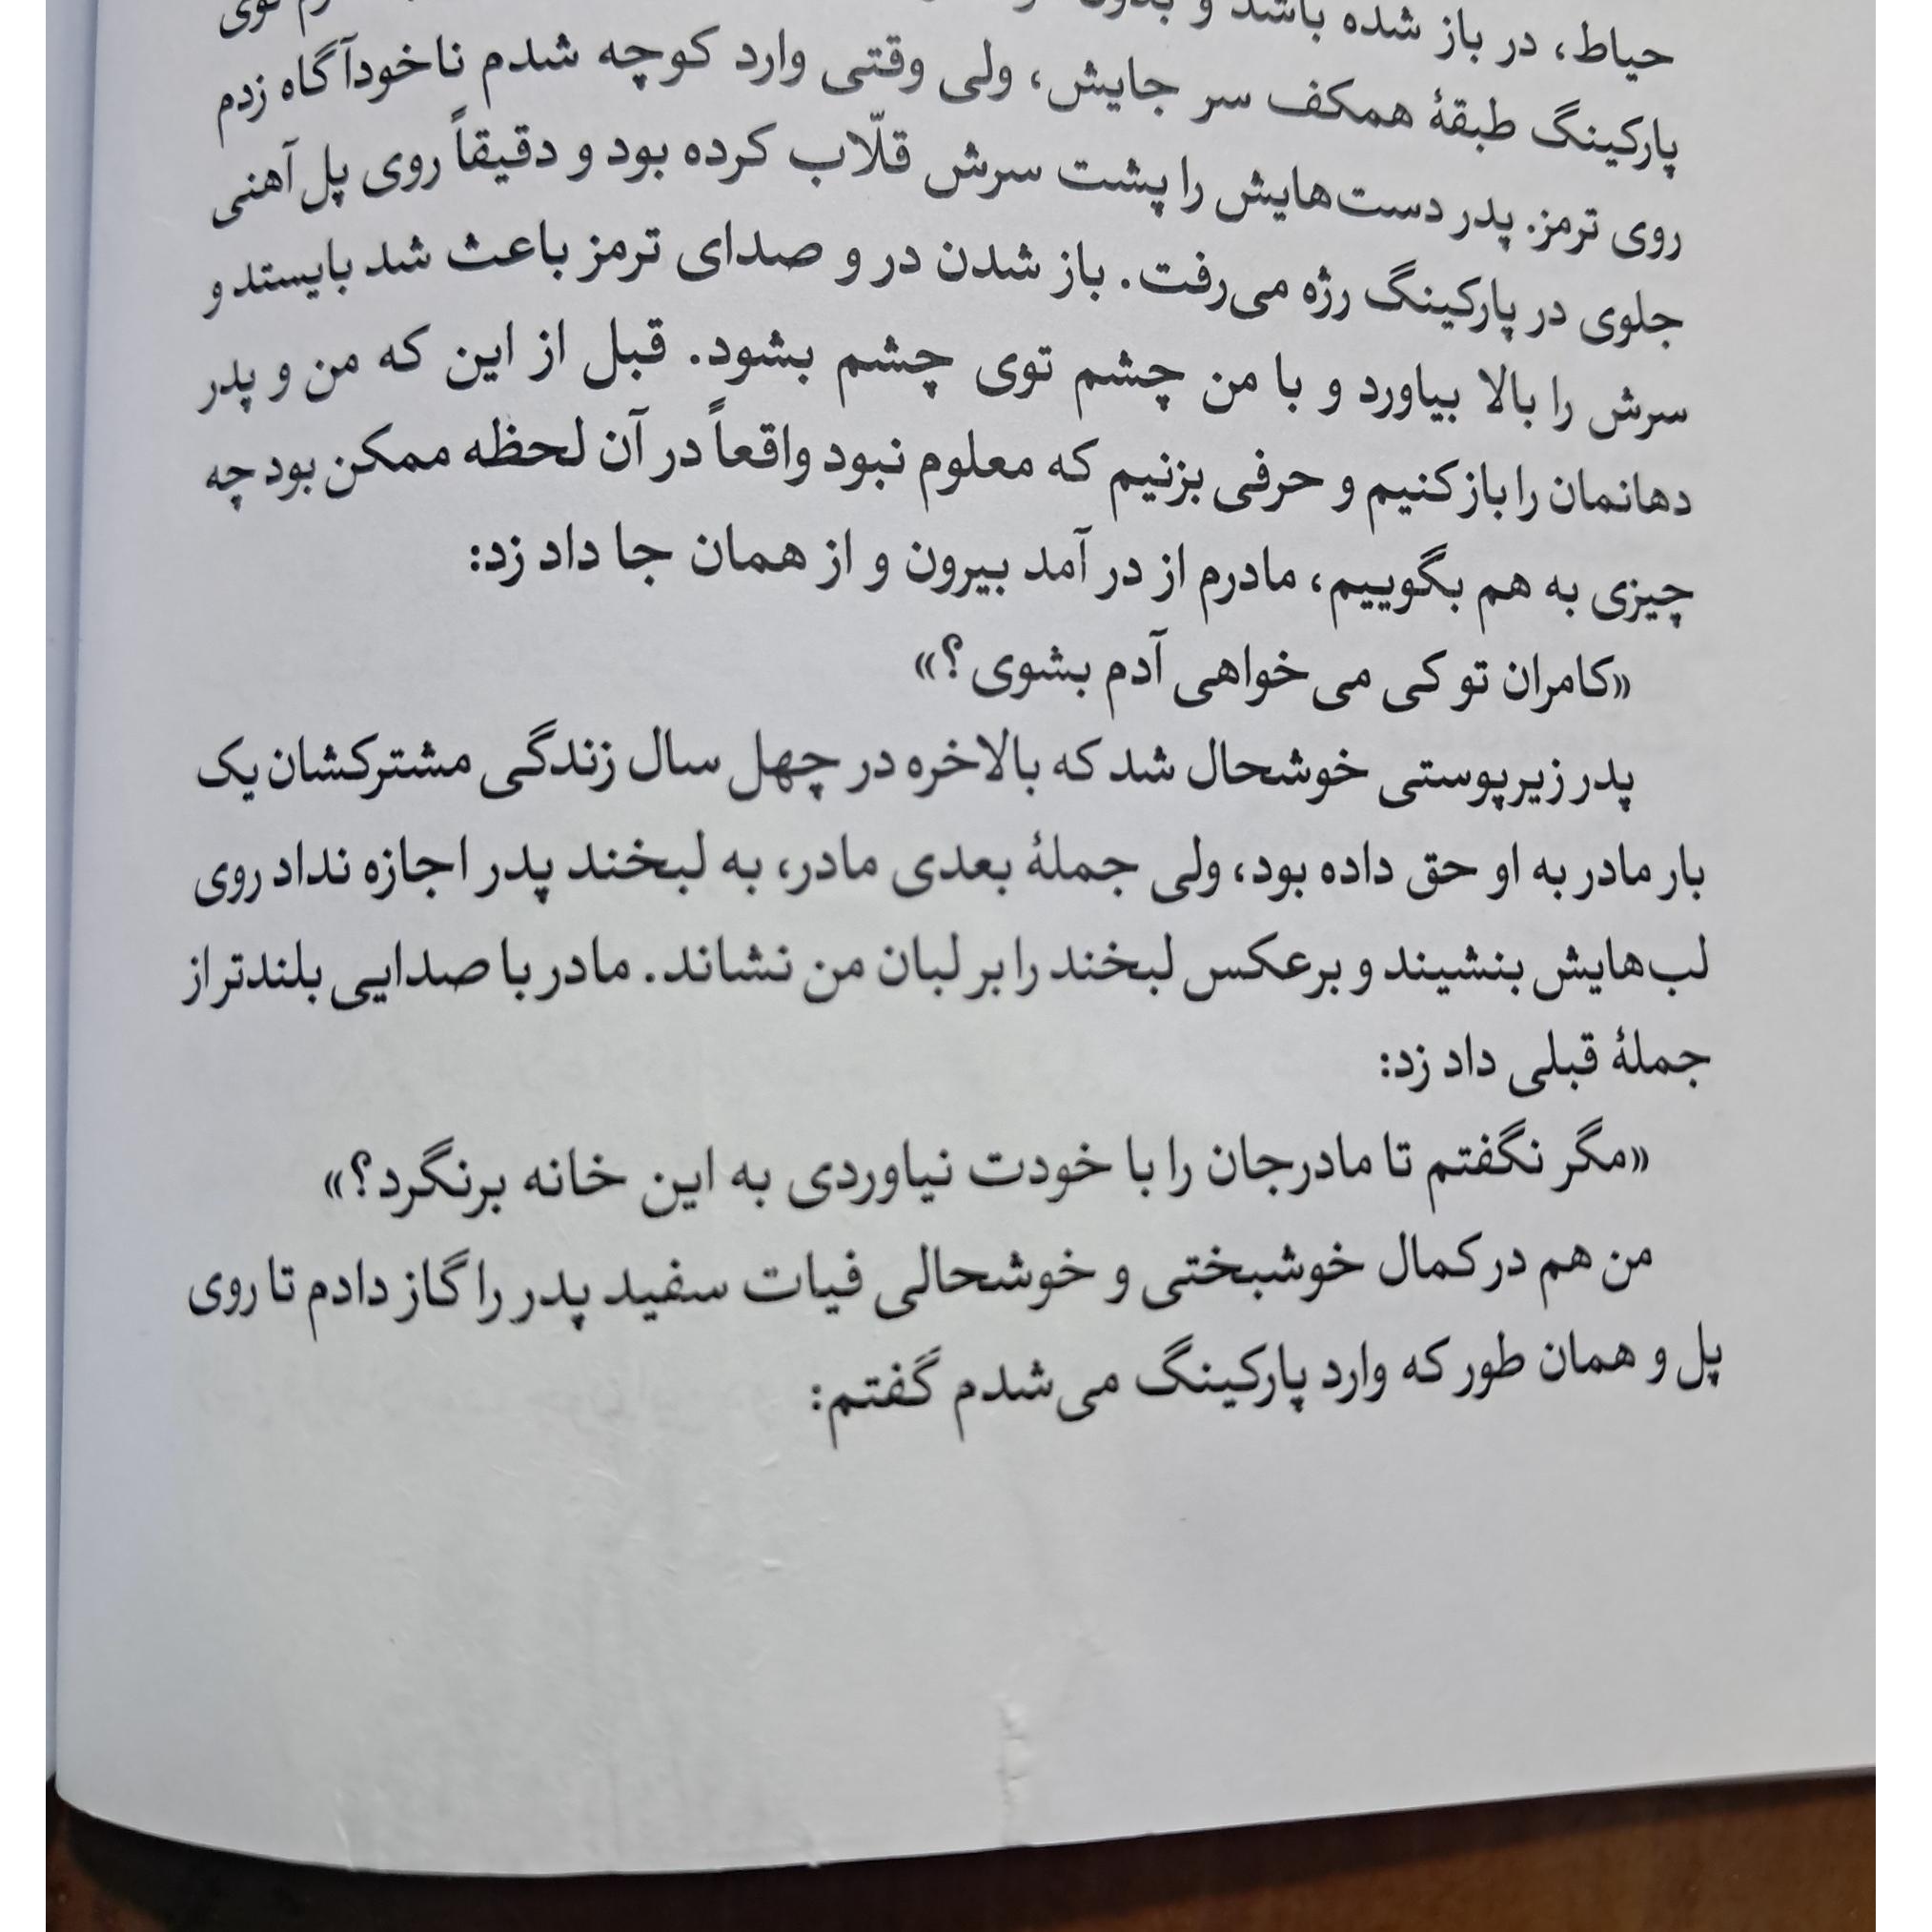 حیاط، در باز شده باشد و بدون
پارکینگ طبقهٔ همکف سر جایش، ولی وقتی وارد کوچه شدم ناخودآگاه زدم
روی ترمز. پدر دست‌هایش را پشت سرش قلّاب کرده بود و دقیقاً روی پل آهنی
جلوی در پارکینگ رژه می‌رفت. باز شدن در و صدای ترمز باعث شد بایستد و
سرش را بالا بیاورد و با من چشم توی چشم بشود. قبل از این که من و پدر
دهانمان را باز کنیم و حرفی بزنیم که معلوم نبود واقعاً در آن لحظه ممکن بود چه
چیزی به هم بگوییم، مادرم از در آمد بیرون و از همان جا داد زد:
«کامران تو کی می‌خواهی آدم بشوی؟»
پدر زیرپوستی خوشحال شد که بالاخره در چهل سال زندگی مشترکشان یک
بار مادر به او حق داده بود، ولی جملهٔ بعدی مادر، به لبخند پدر اجازه نداد روی
لب‌هایش بنشیند و برعکس لبخند را بر لبان من نشاند. مادر با صدایی بلندتر از
جملهٔ قبلی داد زد:
«مگر نگفتم تا مادرجان را با خودت نیاوردی به این خانه برنگرد؟»
من هم در کمال خوشبختی و خوشحالی فیات سفید پدر را گاز دادم تا روی
پل و همان طور که وارد پارکینگ می‌شدم گفتم: